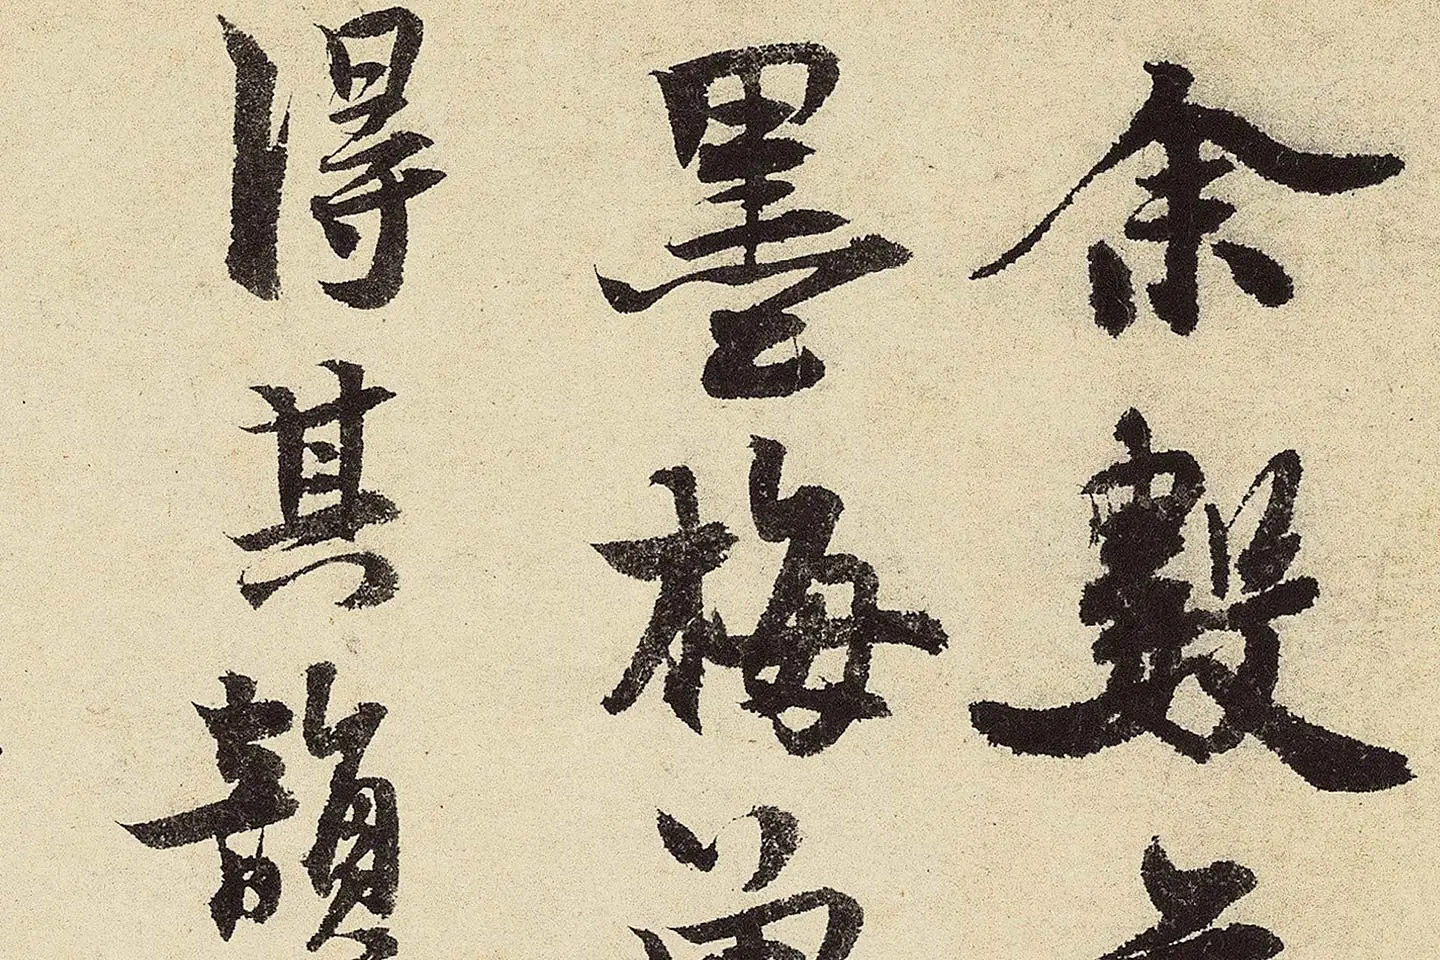 余數
墨梅曾
得其韻